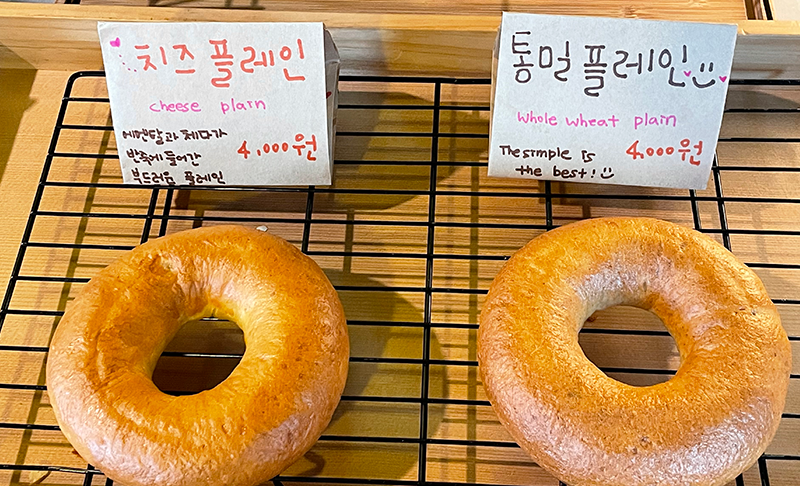 치즈 플레인
cheese plain
에멘탈과 체다가
반죽에 들어간
부드러운 플레인
4,000원
통밀 플레인
whole wheat plain
The simple is
the best!
4,000원